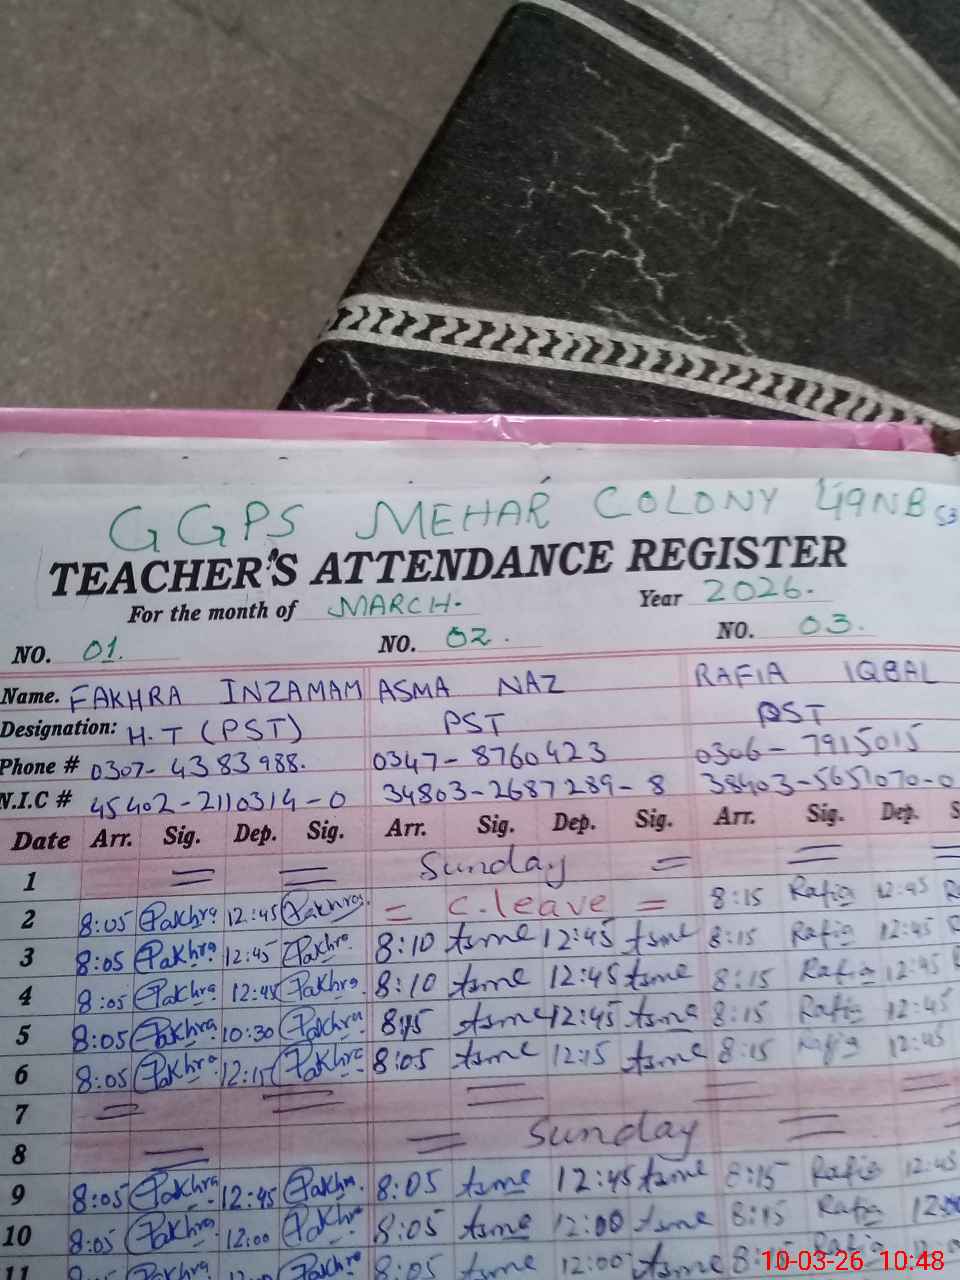 GGPS MEHAR COLONY 49NB
TEACHER'S ATTENDANCE REGISTER
For the month of MARCH. Year 2026.
NO. 01. NO. 02. NO. 03.
Name. FAKHRA INZAMAM ASMA NAZ RAFIA IQBAL
Designation: H.T (PST) PST PST
Phone # 0307-4383988. 0347-8760423 0306-7915015
N.I.C # 45402-2110314-0 34803-2687289-8 38403-5651070-0
Date Arr. Sig. Dep. Sig. Arr. Sig. Dep. Sig. Arr. Sig. Dep. S
1 = = Sunday = = =
2 8:05 Fakhra 12:45 Fakhra. = C.leave = 8:15 Rafia 12:45 R
3 8:05 Fakhra 12:45 Fakhra. 8:10 Asma 12:45 Asma 8:15 Rafia 12:45 R
4 8:05 Fakhra 12:45 Fakhra. 8:10 Asma 12:45 Asma 8:15 Rafia 12:45 R
5 8:05 Fakhra 10:30 Fakhra 8:15 Asma 12:45 Asma 8:15 Rafia 12:45
6 8:05 Fakhra 12:15 Fakhra 8:05 Asma 12:15 Asma 8:15 Rafia 12:45
7 = = = = =
8 = = Sunday =
9 8:05 Fakhra 12:45 Fakhra. 8:05 Asma 12:45 Asma 8:15 Rafia 12:45
10 8:05 Fakhra 12:00 Fakhra 8:05 Asma 12:00 Asma 8:15 Rafia 12:00
11 Fakhra Fakhra 8:05 Asma 12:00 Asma 8:15 Rafia
10-03-26 10:48